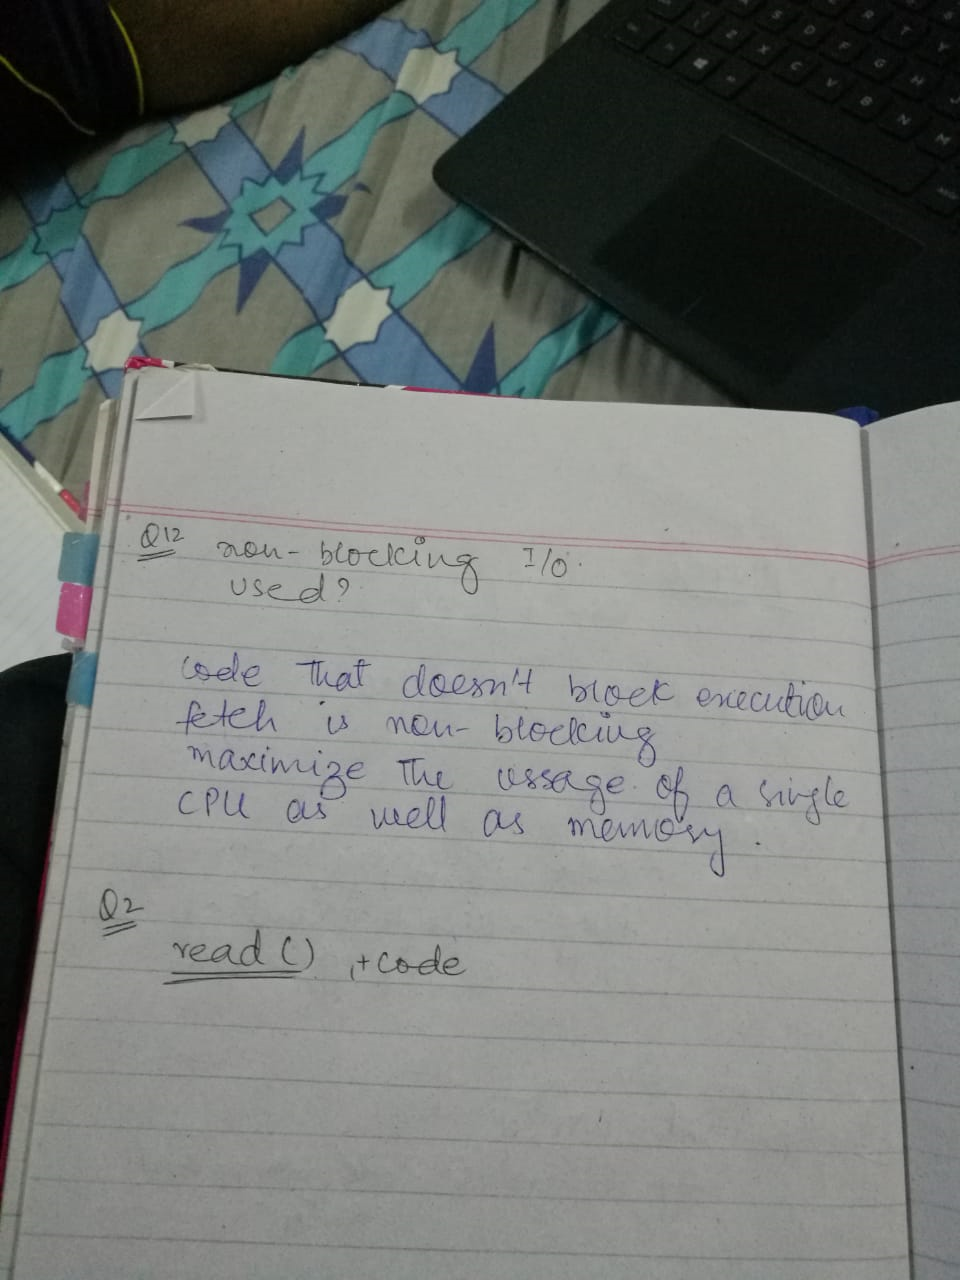 Q12 non-blocking I/O.
used?
code that doesn't block execution
fetch is non-blocking
maximize the ussage of a single
CPU as well as memory.
Q2
read() , + code